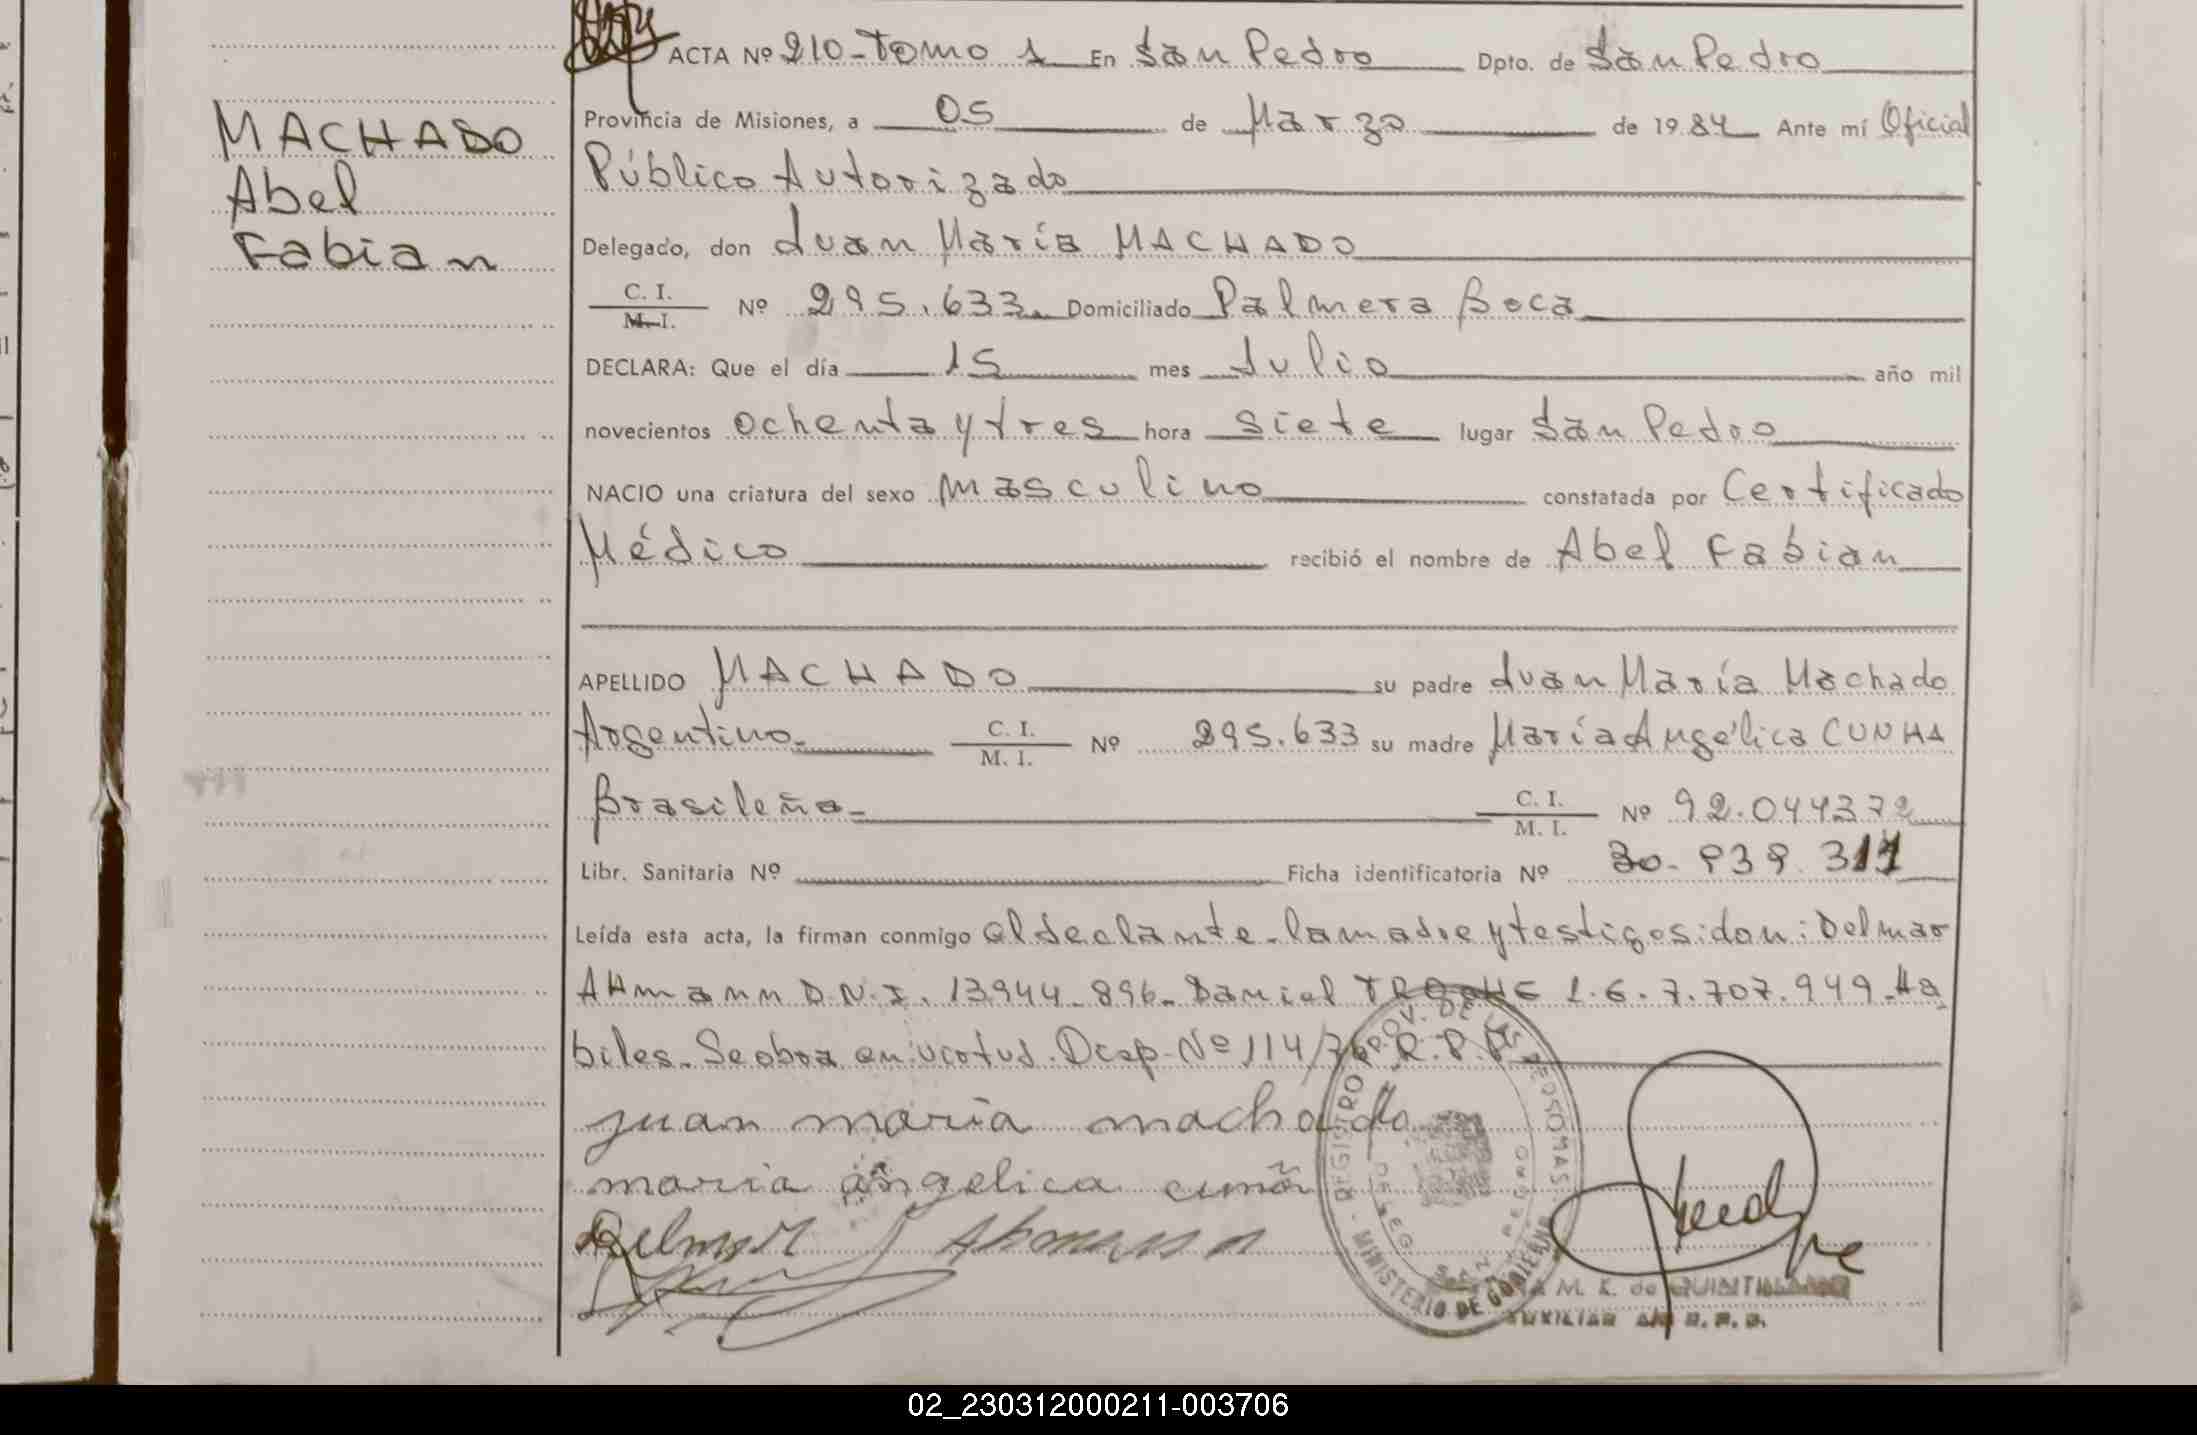 ACTA Nº 210-Tomo 1 En San Pedro Dpto. de San Pedro
Provincia de Misiones, a 05 de Marzo de 1984 Ante mí Oficial
Público Autorizado
Delegado, don Juan María MACHADO
C. I.
M. I. Nº 295.633 Domiciliado Palmera Boca
DECLARA: Que el día 15 mes Julio año mil
novecientos ochenta y tres hora siete lugar San Pedro
NACIO una criatura del sexo masculino constatada por Certificado
Médico recibió el nombre de Abel Fabian
APELLIDO MACHADO su padre Juan María Machado
Argentino C. I. M. I. Nº 295.633 su madre María Angélica CUNHA
Brasileña C. I. M. I. Nº 92.044372
Libr. Sanitaria Nº Ficha identificatoria Nº 30-939.311
Leída esta acta, la firman conmigo el declante-la madre y testigos: don: Delmar
Ahmann D.N.I. 13944-896-Daniel L.E. 7.707.949-Ha
biles-Se obra en virtud. Dcep-Nº 114/76-R.P.P.
juan maria machado
maria angelica
Delmar Ahmann
MACHADO
Abel
Fabian
REGISTRO PROV. DE LAS PERSONAS
MINISTERIO DE GOBIERNO
DELEG. SAN PEDRO
M. K. de QUINTILIANO
AUXILIAR A/C R.P.P.
02_230312000211-003706